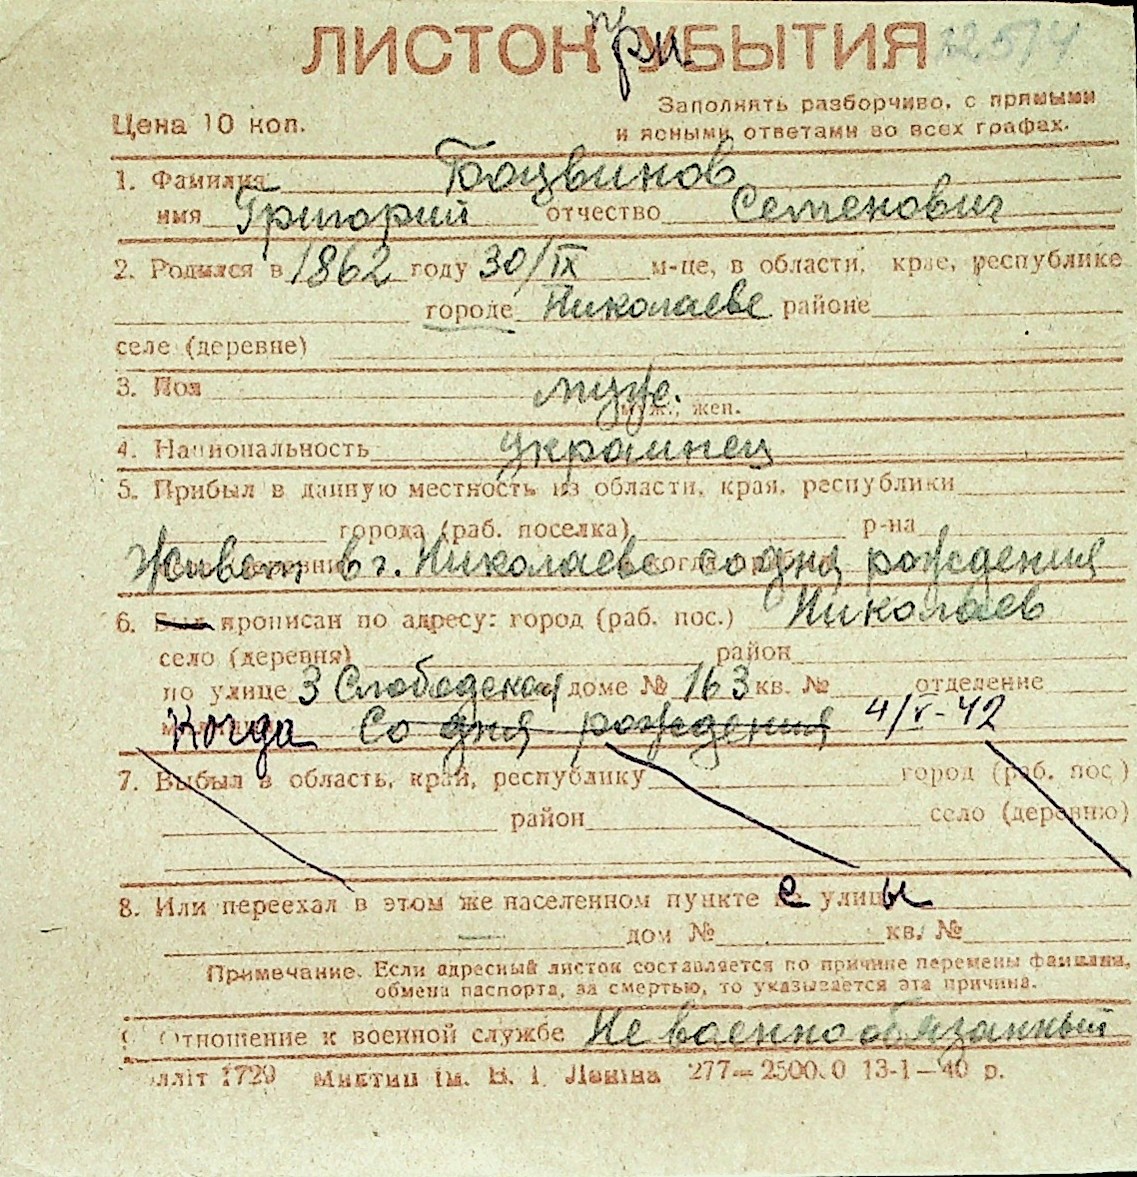 ЛИСТОК при УБЫТИЯ
Цена 10 коп.
Заполнять разборчиво, с прямыми
и ясными ответами во всех графах.
1. Фамилия Боцвинов
имя Григорий отчество Семенович
2. Родился в 1862 году 30/IX м-це, в области, крае, республике
городе Николаеве районе
селе (деревне)
3. Пол муж.
муж., жен.
4. Национальность украинец
5. Прибыл в данную местность из области, края, республики
города (раб. поселка) р-на
Живет в г. Николаеве со дня рождения
6. Был прописан по адресу: город (раб. пос.) Николаев
село (деревня) район
по улице 3 Слободская доме № 163 кв. № отделение
Когда Со дня рождения 4/V-42
7. Выбыл в область, край, республику город (раб. пос.)
район село (деревню)
8. Или переехал в этом же населенном пункте с улицы
дом № кв. №
Примечание. Если адресный листок составляется по причине перемены фамилии,
обмена паспорта, за смертью, то указывается эта причина.
9. Отношение к военной службе Не военнообязанный
лліт 1729 Миктип ім. В. І. Леніна 277—2500.0 13-1—40 р.